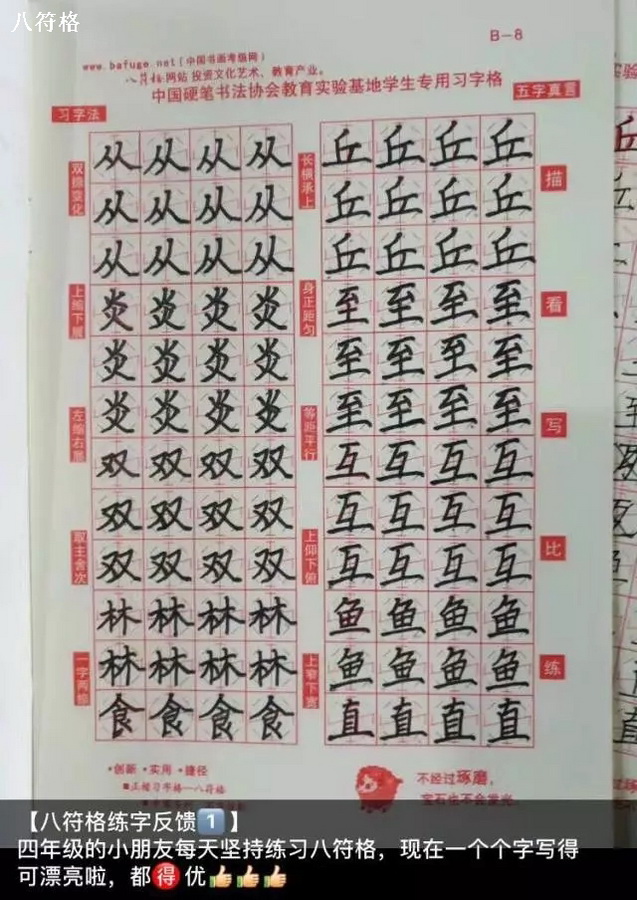 八符格
B-8
www.bafuge.net(中国书画考级网)
八符格 网站 投资文化艺术、教育产业。
中国硬笔书法协会教育实验基地学生专用习字格
五字真言
习字法
从从从从
从从从从
从从从从
炎炎炎炎
炎炎炎炎
炎炎炎炎
双双双双
双双双双
双双双双
林林林林
林林林林
食食食食
上缩下展
左缩右展
取主舍次
丘丘丘丘
丘丘丘丘
丘丘丘丘
至至至至
至至至至
至至至至
互互互互
互互互互
互互互互
鱼鱼鱼鱼
鱼鱼鱼鱼
直直直直
长横承上
身正距匀
等距平行
上仰下俯
上窄下宽
描
看
写
比
练
·创新 ·实用 ·捷径
■正楷习字格—八符格
不经过琢磨，
宝石也不会发光。
【八符格练字反馈1️⃣】
四年级的小朋友每天坚持练习八符格，现在一个个字写得
可漂亮啦，都🉐优👍👍👍